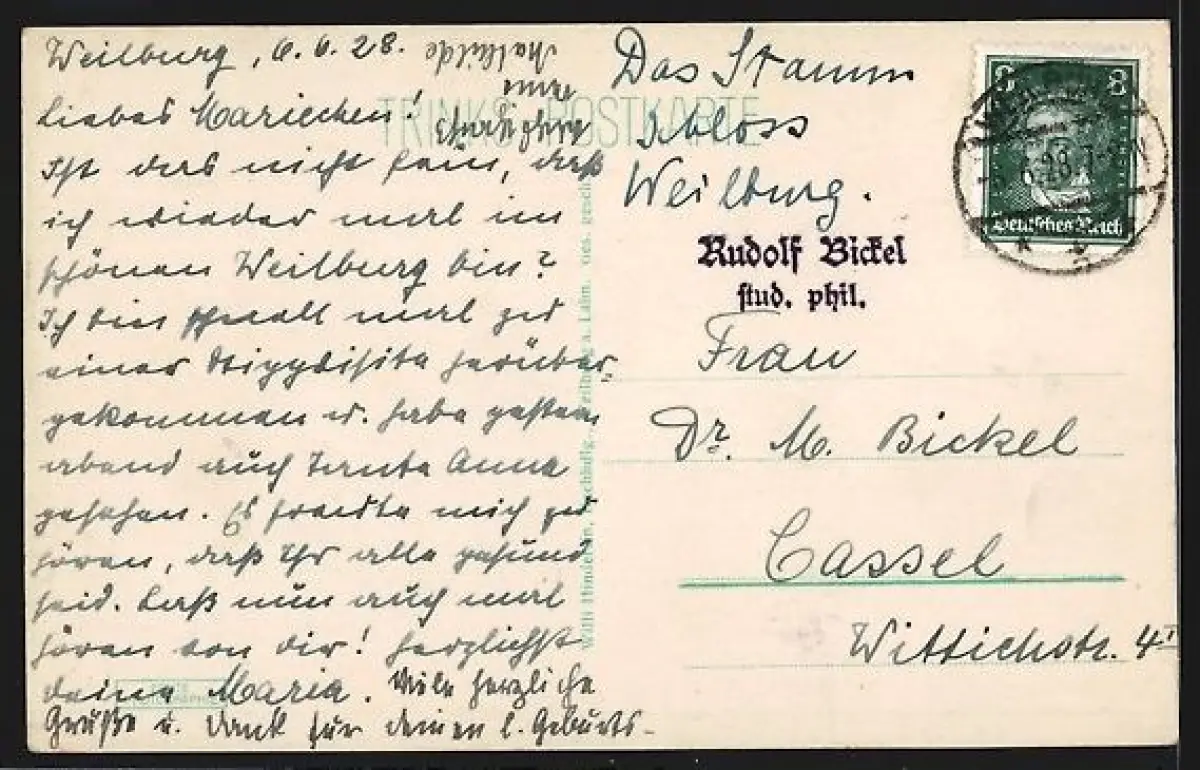 Weilburg, 6.6.28.
Liebes Mariechen!
Ist das nicht fein, daß
ich wieder mal im
schönen Weilburg bin?
Ich bin schnell mal zu
einer Stippvisite herüber=
gekommen u. habe gestern
abend auch Tante Anna
gesehen. Es freute mich zu
hören, daß Ihr alle gesund
seid. Laß nun auch mal
hören von dir! Herzlichst
deine Maria. Viele herzliche
Grüße u. Dank für deinen l. Geburts-
Tante
Mathilde
TRINKS POSTKARTE
Das Stamm
schloss
Weilburg.
Rudolf Bickel
stud. phil.
Frau
Dr. M. Bickel
Cassel
Wittichstr. 4 I
8 8
Deutsches Reich
6.28.
Weilburg a. Lahn. Ges. gesch.